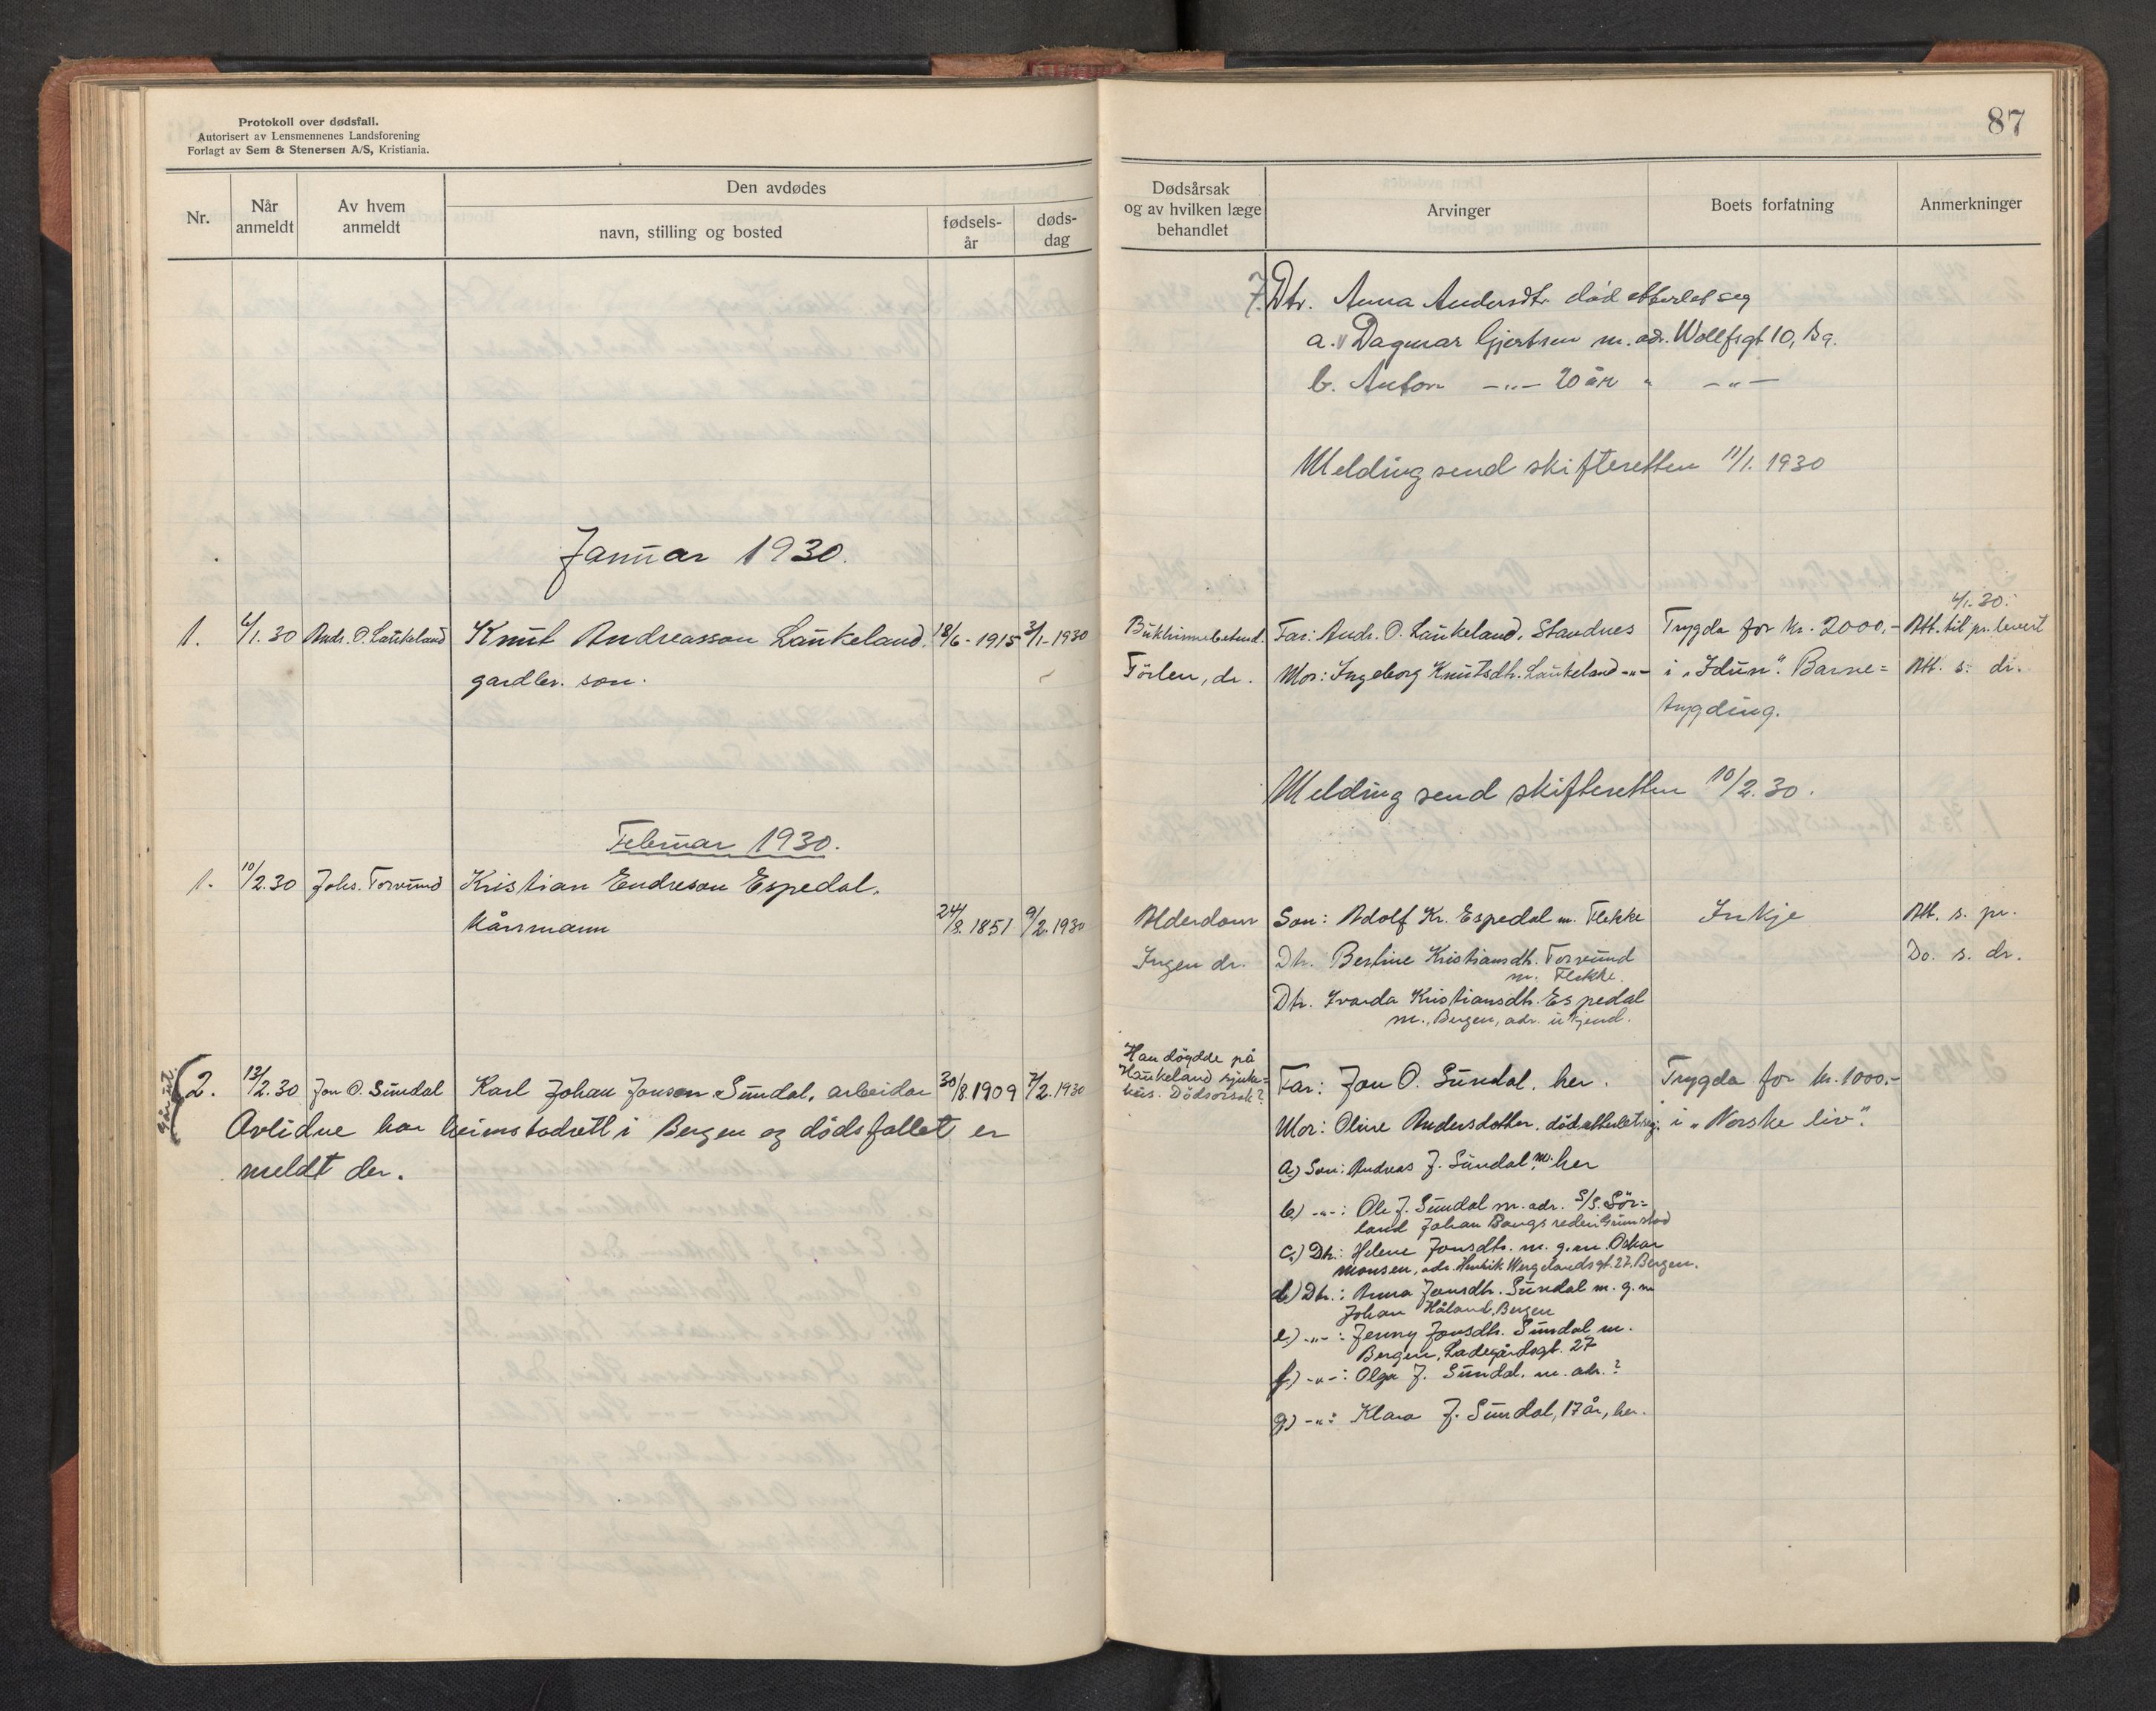 Protokoll over dødsfall.
Autorisert av Lensmennenes Landsforening
Forlagt av Sem & Stenersen A/S, Kristiania.
Nr.
Når anmeldt
Av hvem anmeldt
Den avdødes
navn, stilling og bosted
fødsels-år
døds-dag
Januar 1930.
1. 4/1.30 Andr. O. Laukeland Knut Andreasson Laukeland. 18/6-1915 3/1-1930
gardbr. son.
Februar 1930.
1. 10/2.30 Johs. Torvund Kristian Endreson Espedal.
Kårmann 24/8.1851 9/2.1930
2. 13/2.30 Jon O. Sundal Karl Johan Jonson Sundal, arbeidar 30/8.1909 7/2.1930
Avlidne har heimstadrett i Bergen og dødsfallet er
meldt der.
87
Dødsårsak
og av hvilken læge
behandlet
Arvinger
Boets forfatning
Anmerkninger
7. Dtr. Anna Andersdtr død etterlet seg
a. Dagmar Gjertsen m. adr. Wollfsgt. 10, Bg.
b. Anton -"- 20 år " -"-
Melding send skifteretten 11/1. 1930
4/1.30.
Bukhinnebetend. Far: Andr. O. Laukeland, Standnes Trygda for kr. 2000,- Att. til pr. levert
Törlen, dr. Mor: Ingeborg Knutsdtr. Laukeland -"- i "Idun". Barne= Att. s. dr.
trygding.
Melding send skifteretten 10/2.30.
Alderdom Son: Adolf Kr. Espedal m. Flekke Inkje Att. s. pr.
Ingen dr. Dtr. Bertine Kristiansdtr. Torvund Do. s. dr.
m. Flekke.
Dtr. Ivarda Kristiansdtr. Espedal
m., Bergen, adr. ukjend.
Han døydde på
Haukeland sjuke=
hus. Dödsorsak?
Far: Jon O. Sundal, her. Trygda for kr. 1000.-
Mor: Oline Andersdotter, död etterlet seg: i "Norske liv".
a) Son: Andreas J. Sundal, m. her
b) -"-: Ole J. Sundal m. adr. S/S. Sör=
land Johan Bangs rederi Grimstad
c.) Dtr.: Helene Jonsdtr. m. g.m. Oskar
Monsen, adr. Henrik Wergelandsgt. 27. Bergen.
d) Dtr.: Anna Jonsdtr. Sundal m. g. m
Johan Håland, Bergen
e.) -"-: Jenny Jonsdtr. Sundal m.
Bergen, Ladegårdsgt. 27
f) -"-: Olga J. Sundal. m. adr.?
g) -"-: Klara J. Sundal, 17 år, her.